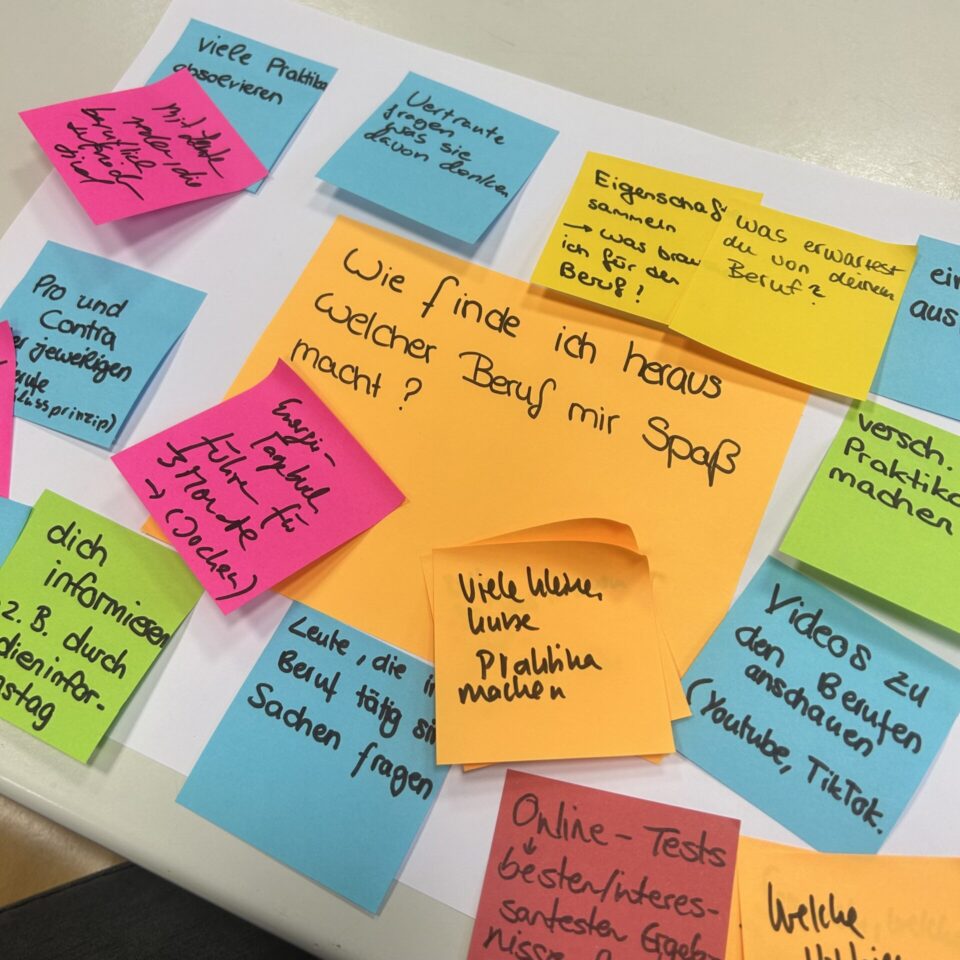 viele Praktika
absolvieren
Mit Leute
reden, die
beruflich
zufrieden
sind
Vertraute
fragen
was sie
davon denken
Eigenschaf
sammeln
→ was brau
ich für den
Beruf!
was erwartest
du von deinem
Beruf?
ein
aus
Pro und
Contra
er jeweiligen
erufe
lussprinzip)
Wie finde ich heraus
welcher Beruf mir Spaß
macht?
Energie-
Tagebuch
führen für
3 Monate
→ (Wochen)
versch.
Praktika
machen
dich
informieren
z. B. durch
dieninfor-
nstag
Viele kleine,
kurze
Praktika
machen
Leute, die i
Beruf tätig sin
Sachen fragen
Videos zu
den Berufen
anschauen
(Youtube, TikTok.
Online-Tests
↓
besten/interes-
santesten Ergeb-
nisse
Welche